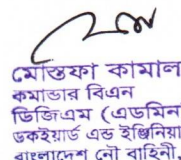 মোস্তফা কামাল
কমান্ডার বিএন
ডিজিএম (এডমিন
ডকইয়ার্ড এন্ড ইঞ্জিনিয়া
বাংলাদেশ নৌ বাহিনী,